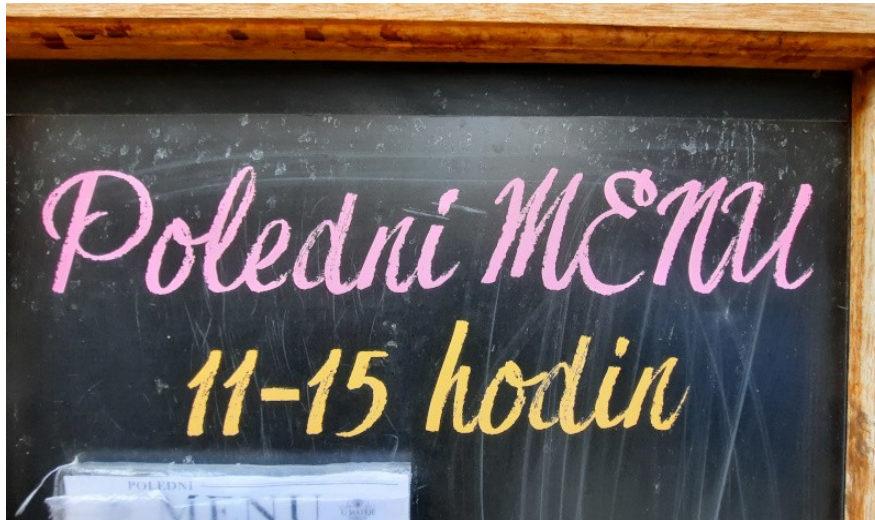 Polední MENU
11-15 hodin
POLEDNÍ
MENU